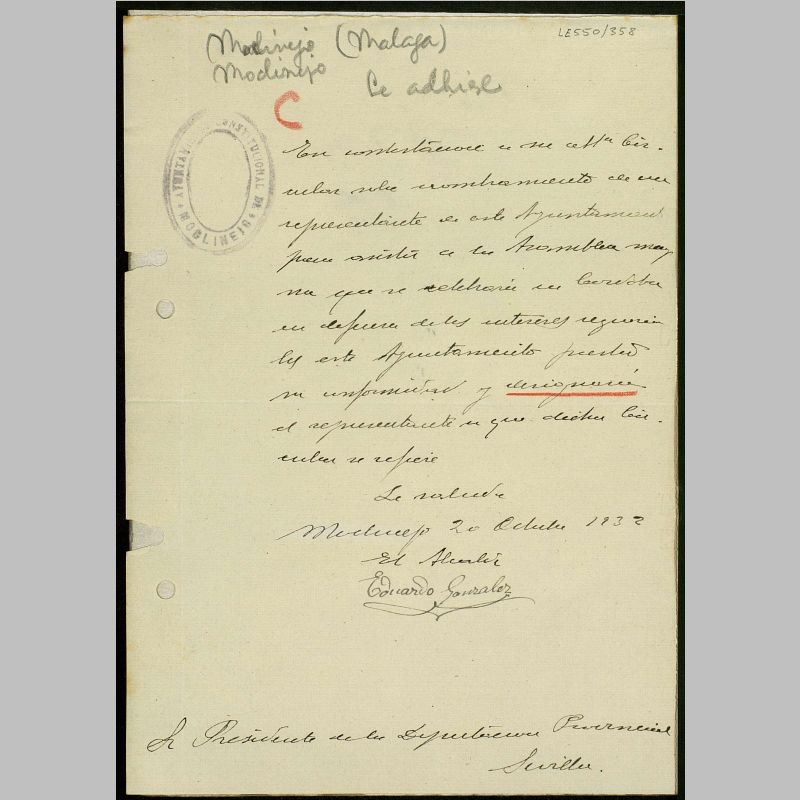 LE550/358
Moclinejo (Malaga)
Moclinejo
Se adhiere
C
AYUNTAMIENTO CONSTITUCIONAL DE
* MOCLINEJO *
En contestacion a su attª Cir-
cular sobre nombramiento de un
representante de este Ayuntament
para asistir a la Asamblea mag
na que se celebrara en Cordoba
en defensa de los intereses regiona
les este Ayuntamiento presta
su conformidad y designará
el representante a que dicha Cir-
cular se refiere
Le saluda
Moclinejo 20 Octubre 1932
El Alcalde
Eduardo Gonzalez
Sr Presidente de la Diputacion Provincial
Sevilla.